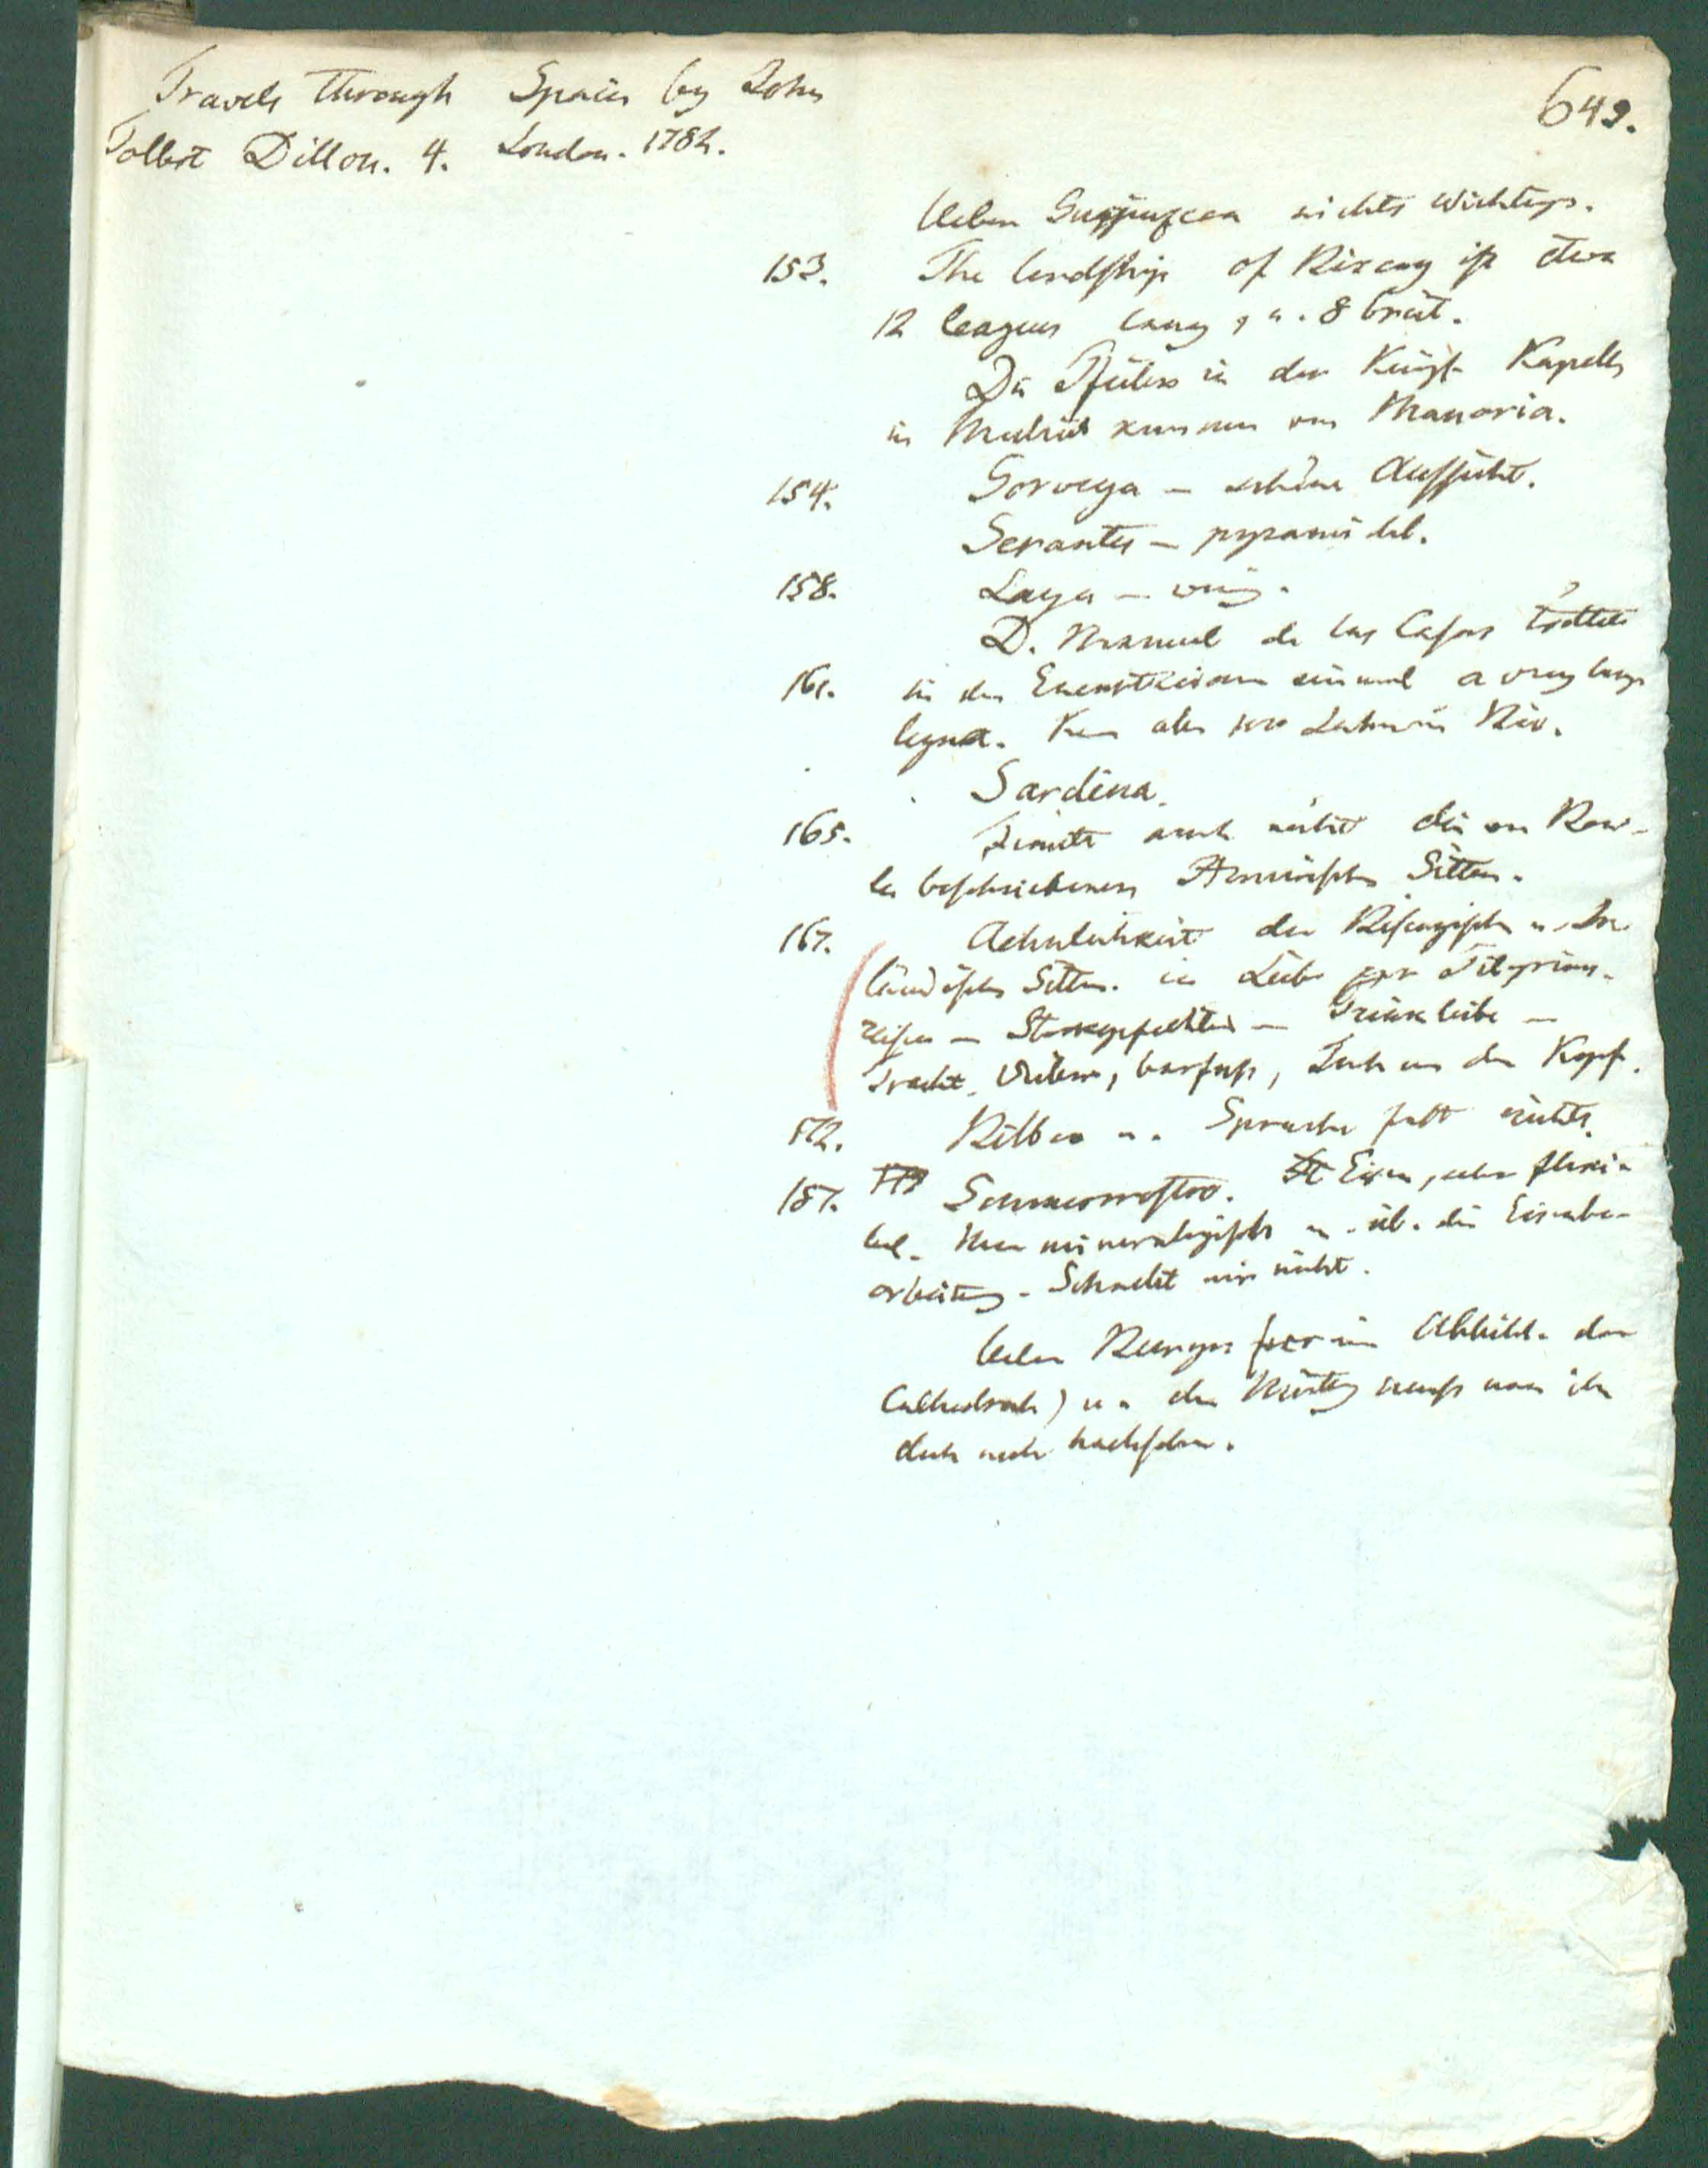 Travels through Spain by John
Talbot Dillon. 4. London. 1782.
649.
Ueber Guipuzcoa nichts wichtiges.
153. The lordship of Bizcay ist etwa
12 leagues lang, u. 8 breit.
Die Pfeiler in der Königl. Kapelle
in Madrid kommen von Manaria.
154. Gorveya – schöne Aussicht.
Serantes – pyramidal.
158. Laya –
D. Manuel de las Casas
161. in den einmal a very large
Sardina.
165. nicht die von Bow-
les beschriebenen Sitten.
167. Aehnlichkeit der Biscayischen u. Ir-
ländischen Sitten. in Liebe zu Pilgrims-
reisen – Stockgefechten – Trinkliebe –
Tracht. Weiber, barfuss, Tuch um den Kopf.
172. Bilbao u. Sprache fast nichts.
187. Sommorrostro. Eisen, sehr flexi-
bel. mineralogisches u. üb. die Eisenbe-
arbeitung. Schmelzt nicht.
Ueber Burgos Abbild. der
Cathedrale) u. muss man ihn
doch noch nachsehen.